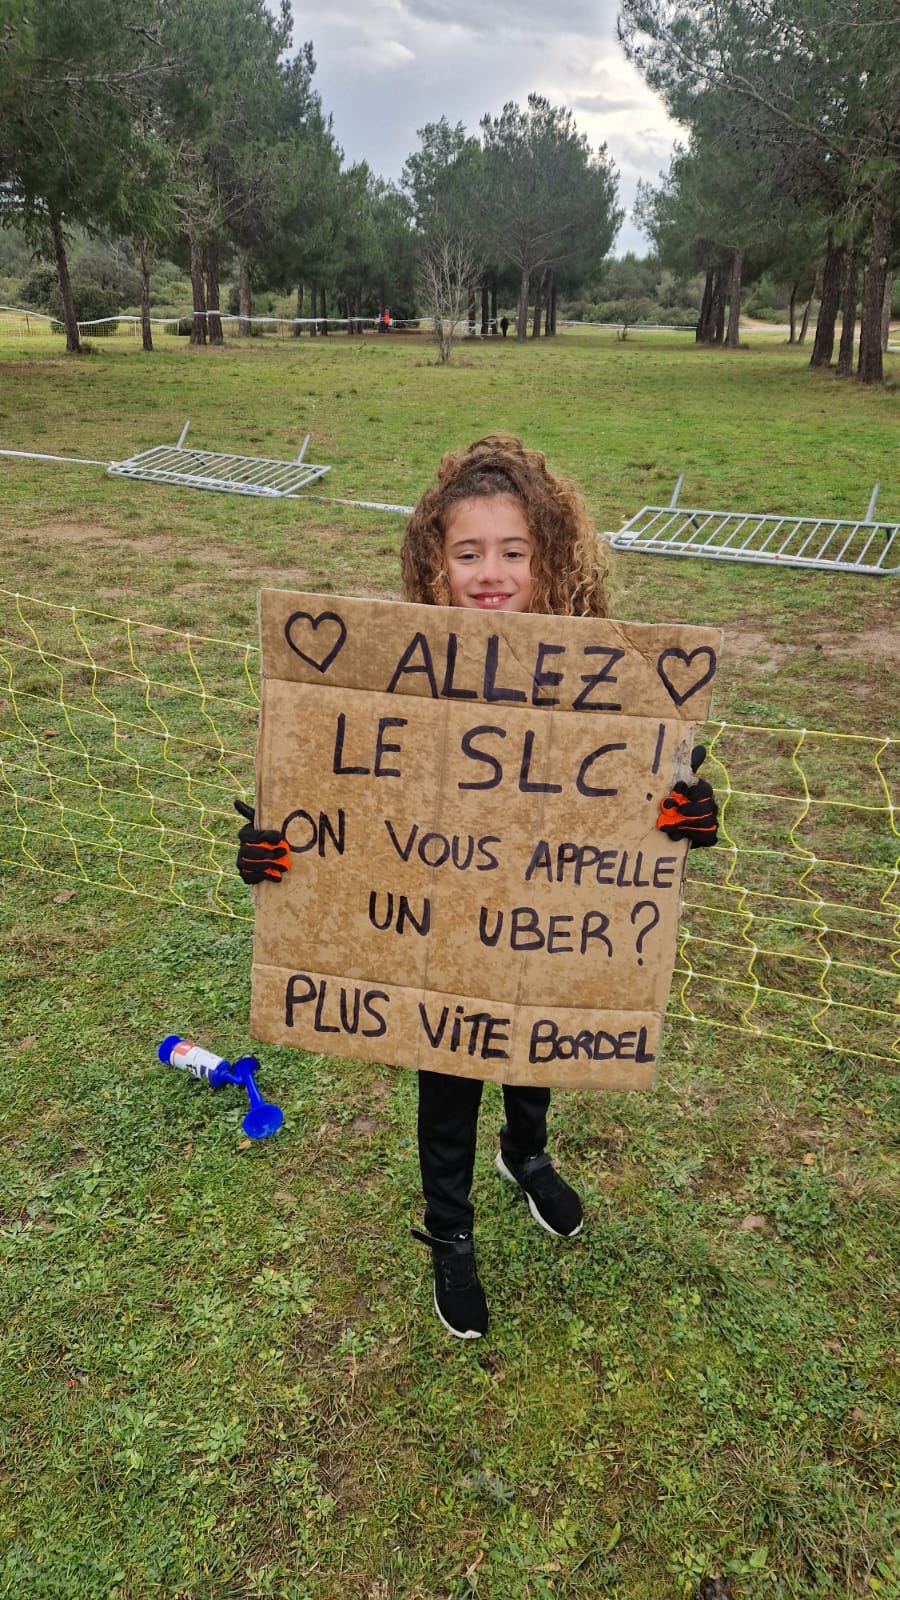 ALLEZ
LE SLC!
ON VOUS APPELLE
UN UBER?
PLUS ViTE BORDEL